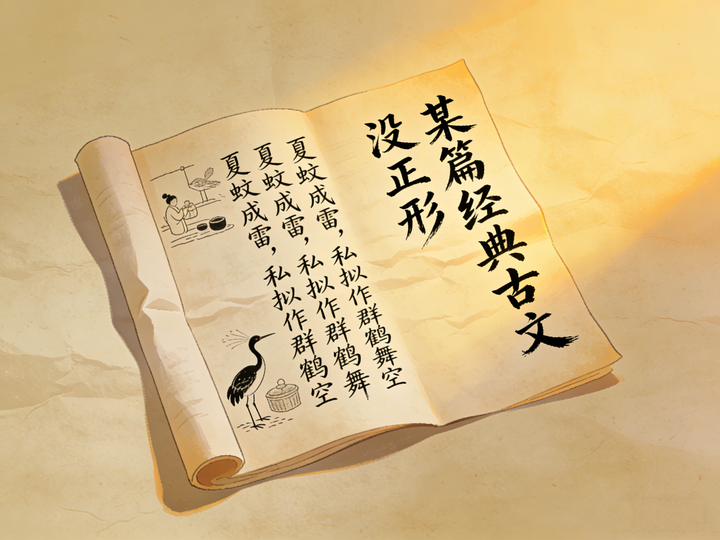 某篇经典古文
没正形
夏蚊成雷,私拟作群鹤舞空
夏蚊成雷,私拟作群鹤舞
夏蚊成雷,私拟作群鹤空